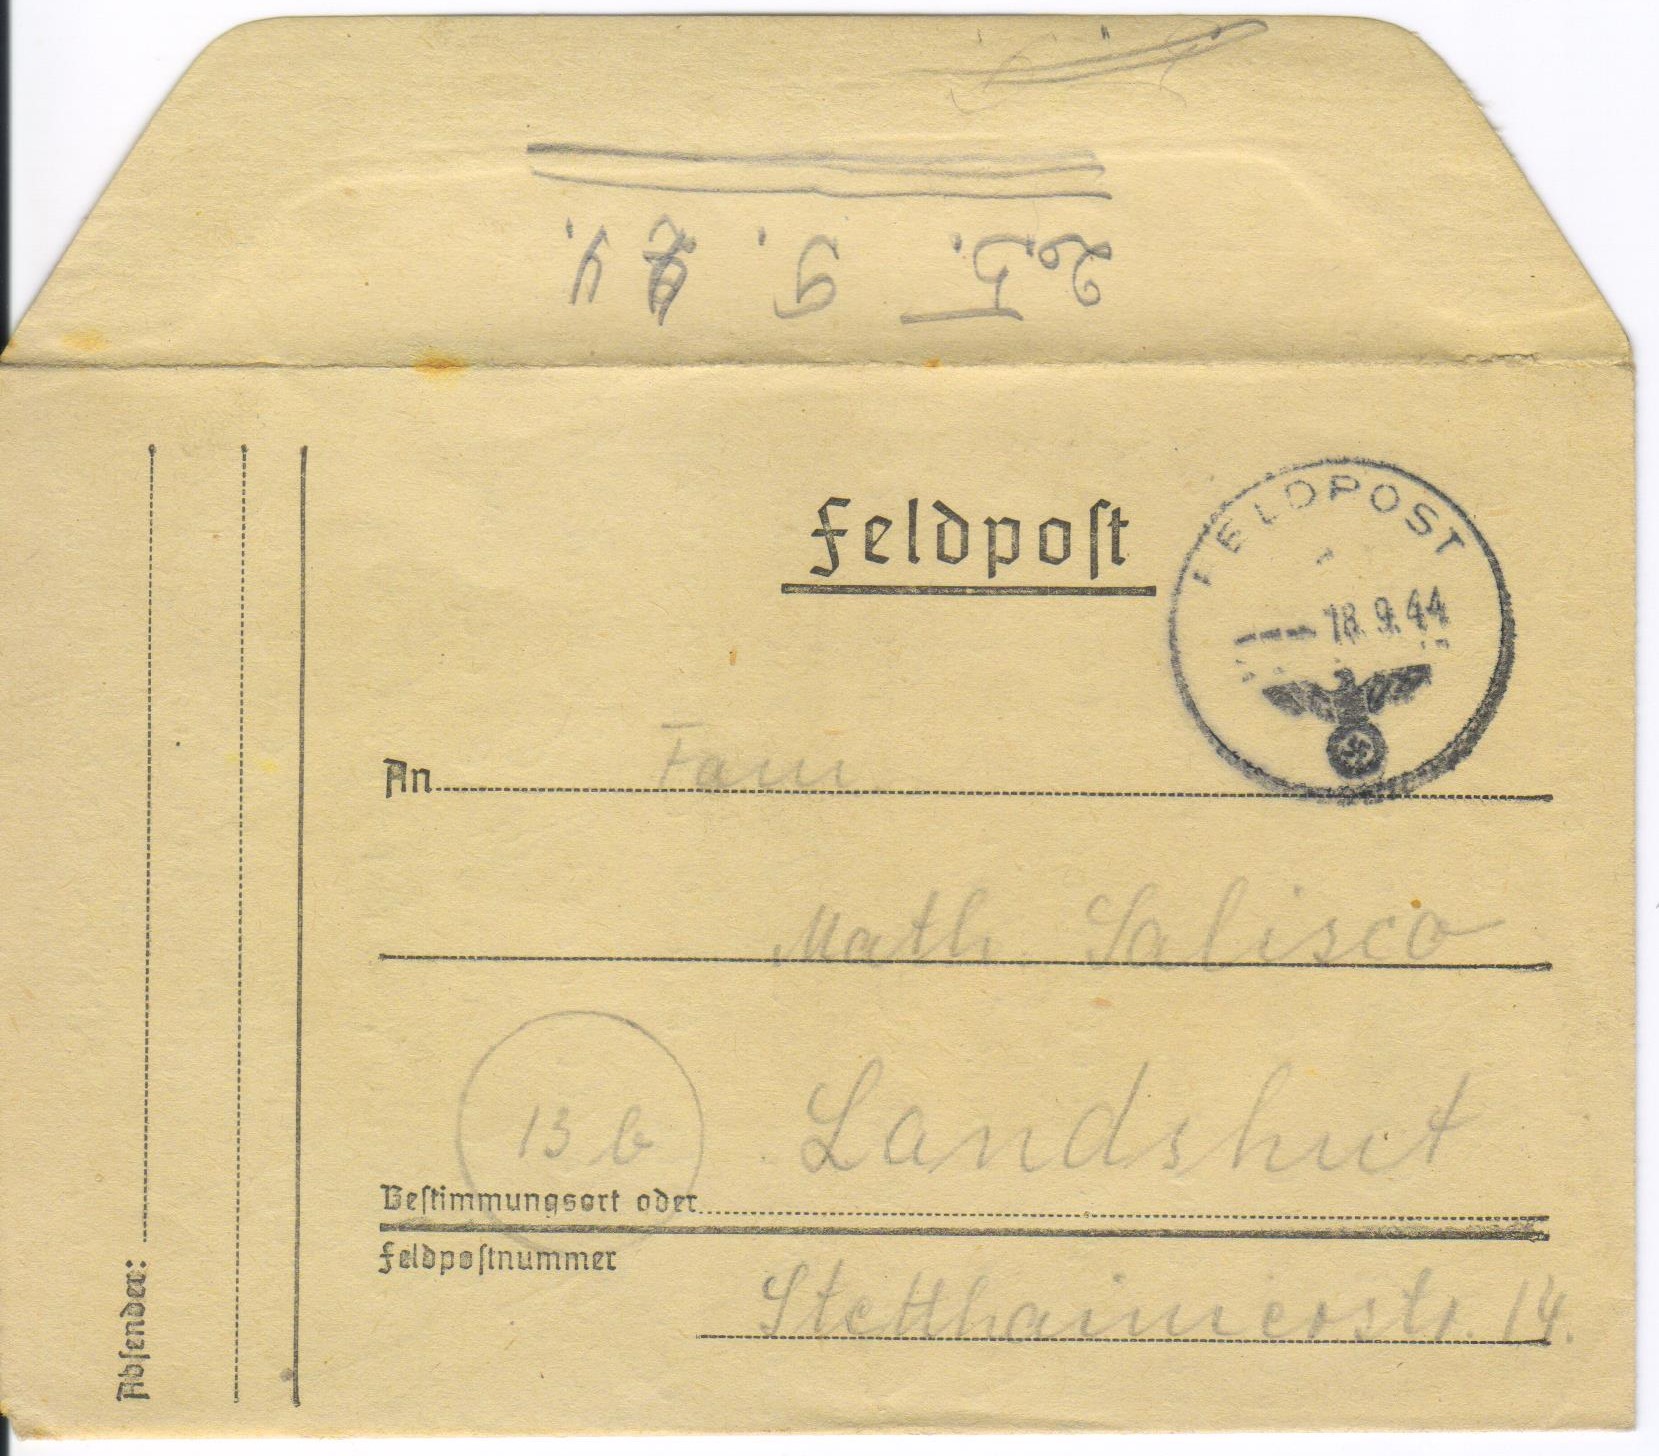 9. 44.
Feldpost
FELDPOST
18.9.44
An Fam
Math. Salisco
13 b Landshut
Bestimmungsort oder
Feldpostnummer
Stetthaimerstr. 14.
Absender: